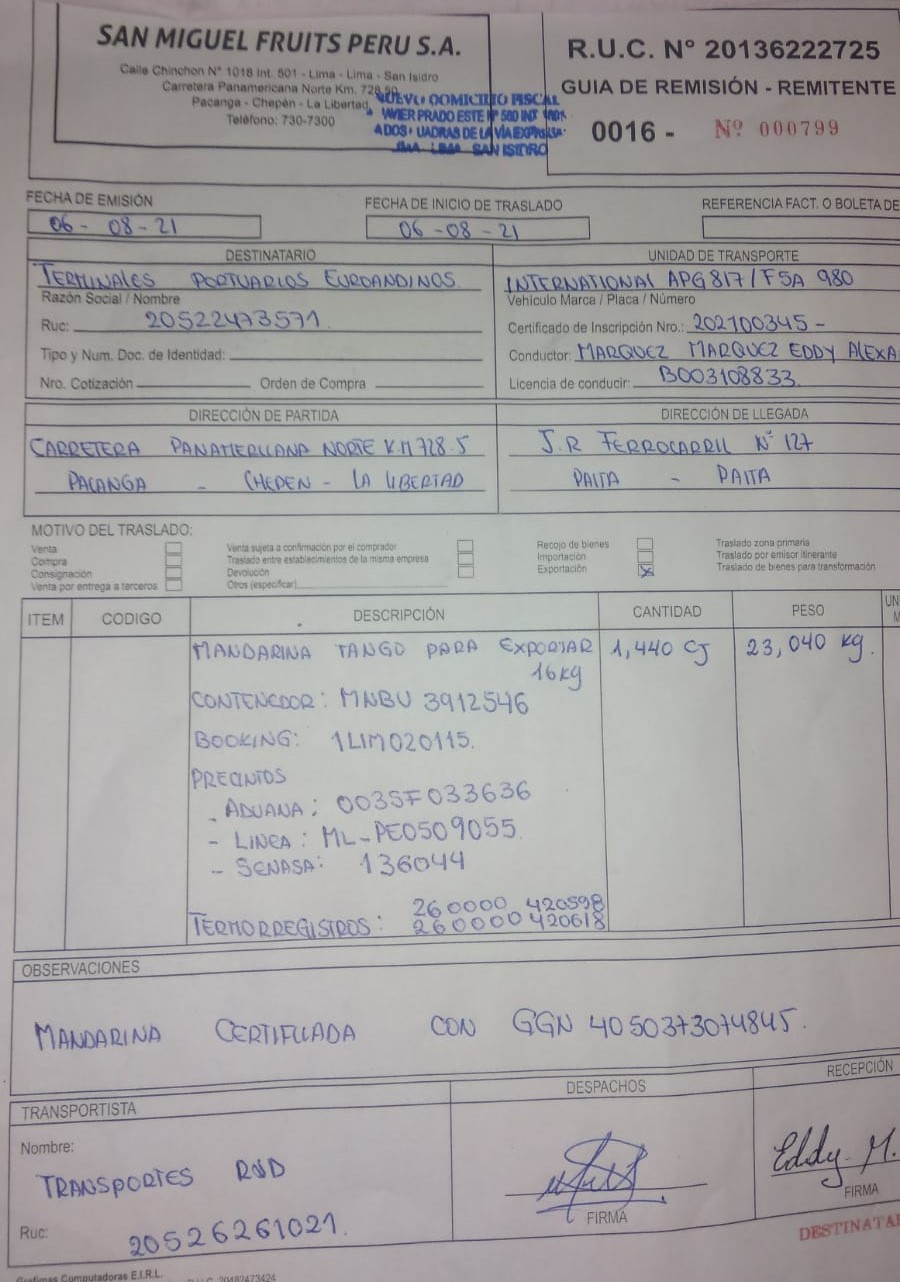 SAN MIGUEL FRUITS PERU S.A.
Calle Chinchon N° 1018 Int. 501 - Lima - Lima - San Isidro
Carretera Panamericana Norte Km. 728.50
Pacanga - Chepén - La Libertad
Teléfono: 730-7300
NUEVO DOMICILIO FISCAL
JAVIER PRADO ESTE N° 560 INT
A DOS CUADRAS DE LA VIA EXPRESA
LIMA LIMA SAN ISIDRO
R.U.C. N° 20136222725
GUIA DE REMISIÓN - REMITENTE
0016 - Nº 000799
FECHA DE EMISIÓN
06 - 08 - 21
FECHA DE INICIO DE TRASLADO
06 - 08 - 21
REFERENCIA FACT. O BOLETA DE
DESTINATARIO
TERMINALES PORTUARIOS EUROANDINOS
Razón Social / Nombre
Ruc: 20522473571
Tipo y Num. Doc. de Identidad:
Nro. Cotización Orden de Compra
UNIDAD DE TRANSPORTE
INTERNATIONAL APG817/F5A 980
Vehiculo Marca / Placa / Número
Certificado de Inscripción Nro.: 202100345 -
Conductor: MARQUEZ MARQUEZ EDDY ALEXA
Licencia de conducir: B003108833
DIRECCIÓN DE PARTIDA
CARRETERA PANAMERICANA NORTE KM 728.5
PACANGA - CHEPEN - LA LIBERTAD
DIRECCIÓN DE LLEGADA
J.R FERROCARRIL N° 127
PAITA - PAITA
MOTIVO DEL TRASLADO:
Venta
Compra
Consignación
Venta por entrega a terceros
Venta sujeta a confirmación por el comprador
Traslado entre establecimientos de la misma empresa
Devolución
Otros (especificar)
Recojo de bienes
Importación
Exportación X
Traslado zona primaria
Traslado por emisor itinerante
Traslado de bienes para transformación
ITEM CODIGO DESCRIPCIÓN CANTIDAD PESO UN
M
MANDARINA TANGO PARA EXPORTAR 1,440 CJ 23,040 kg.
16kg
CONTENEDOR: MNBU 3912546
BOOKING: 1LIM020115.
PRECINTOS
- ADUANA: 003SF033636
- LINEA: ML-PE0509055
- SENASA: 136044
260000 420598
TERMORREGISTROS: 260000420618
OBSERVACIONES
MANDARINA CERTIFICADA CON GGN 4050373074845.
TRANSPORTISTA
Nombre:
TRANSPORTES RND
Ruc: 20526261021.
DESPACHOS
FIRMA
RECEPCIÓN
Eddy M.
FIRMA
DESTINATA
Grafimas Computadoras E.I.R.L.
R.U.C. 20482473424